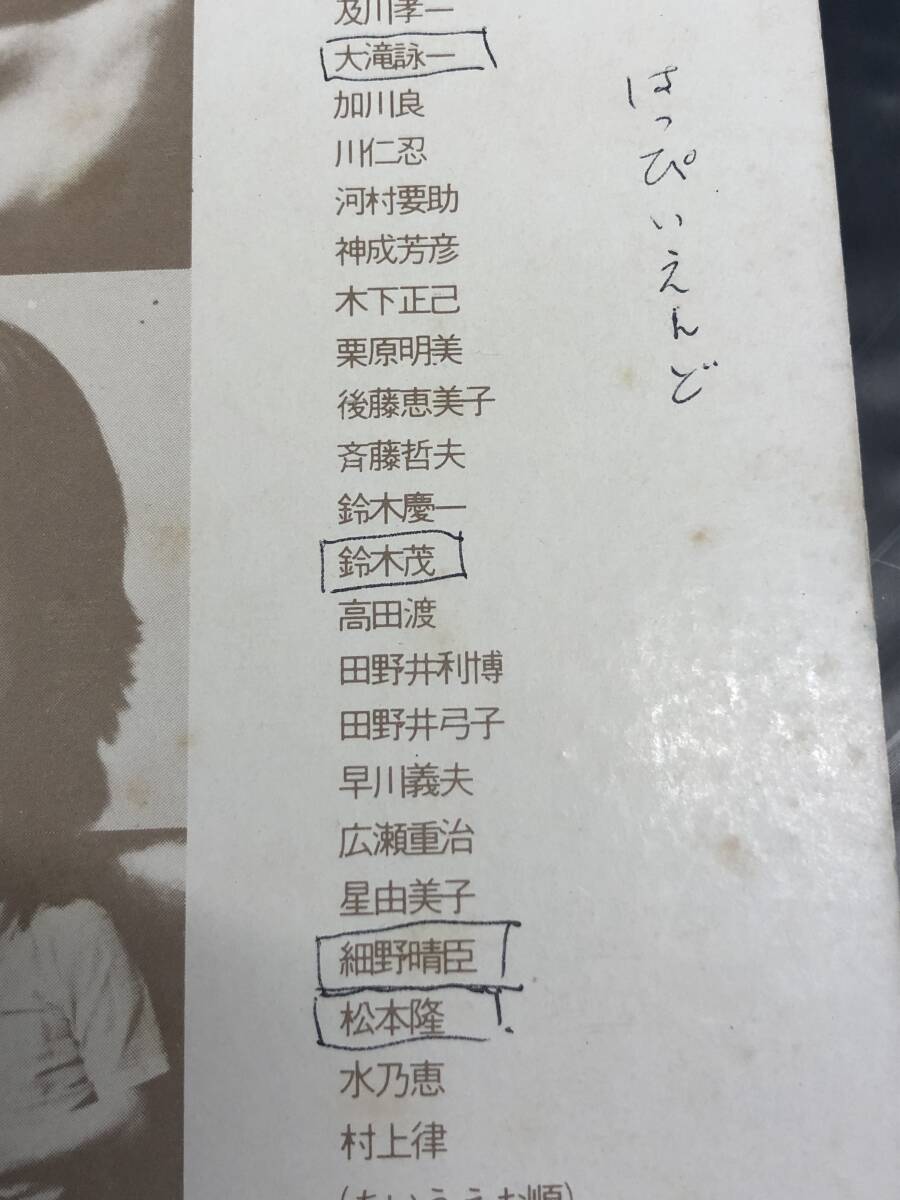 及川孝一
大滝詠一
加川良
川仁忍
河村要助
神成芳彦
木下正己
栗原明美
後藤恵美子
斉藤哲夫
鈴木慶一
鈴木茂
高田渡
田野井利博
田野井弓子
早川義夫
広瀬重治
星由美子
細野晴臣
松本隆
水乃恵
村上律
(あいうえお順)
はっぴいえんど